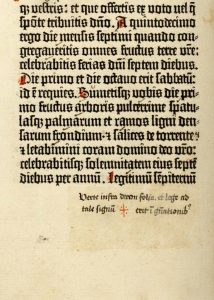 qȝ vestris: et que offertis ex voto uel q̄
spōte tribuitis dño. A quintodecimo
ergo die mensis septimi quando con-
gregaueritis omnes fructus terre vr̄e:
celebrabitis ferias dñi septem diebus.
Die primo et die octauo erit sabbatū:
id ē requies. Sumetisqȝ vobis die pri-
mo fructus arboris pulcerrime spatu-
lasqȝ palmarum et ramos ligni den-
sarum frondium ⁊ salices de torrente
⁊ letabimini coram domino deo vr̄o:
celebrabitisqȝ solennitatem eius septē
diebus per annū. Legitimū sempiternū
Verte infra folia et lege ad
tale signū ☩ erit ī